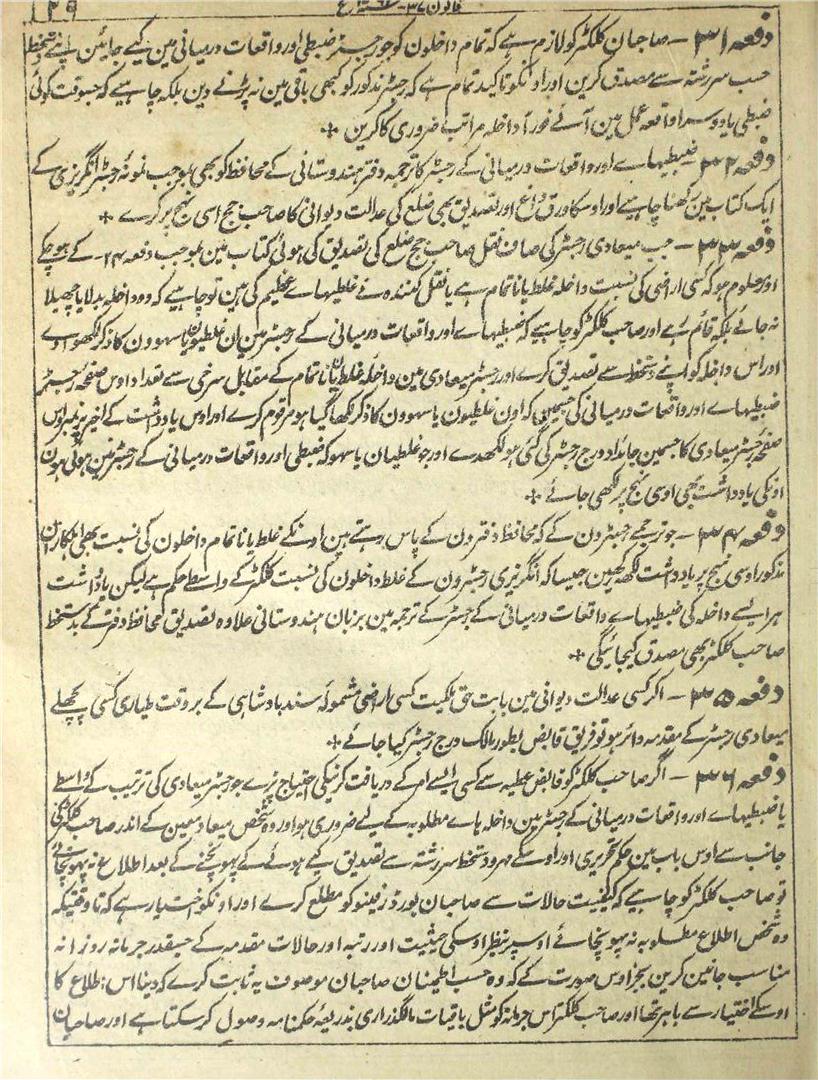 قانون ۳۷ - سنہ ع ۱۲۹
دفعہ ۳۱ - صاحبان کلکٹر کو لازم ہے کہ تمام داخلون کو جو رجسٹر ضبطی اور واقعات درمیانی مین کیے جائین اپنے دستخط
حسب سررشتہ سے مصدق کرین اور اونکو تاکید تمام ہے کہ رجسٹر مذکور کو کبھی باقی مین نہ پڑنے دین بلکہ چاہیے کہ جسوقت کوئی
ضبطی یا دوسرا واقعہ عمل مین آئے فوراً داخلہ مراتب ضروری کا کرین +
دفعہ ۳۲ - ضبطیہاے اور واقعات درمیانی کے رجسٹر کا ترجمہ دفتر ہندوستانی کے محافظ کو بھی بموجب نمونہ رجسٹر انگریزی کے
ایک کتاب مین رکھنا چاہیے اور اوسکا ورق داغ اور تصدیق بھی ضلع کی عدالت دیوانی کا صاحب جج اسی نہج پر کرے +
دفعہ ۳۳ - جب میعادی رجسٹر کی صاف نقل صاحب جج ضلع کی تصدیق کی ہوئی کتاب مین بموجب دفعہ ۲۴ - کے ہو چکے
اور معلوم ہو کہ کسی اراضی کی نسبت داخلہ غلط یا ناتمام ہے یا نقل کنندہ نے غلطیہاے عظیم کی ہین تو چاہیے کہ وہ داخلہ بدلا یا چھیلا
نہ جائے بلکہ قائم رہے اور صاحب کلکٹر کو چاہیے کہ ضبطیہاے اور واقعات درمیانی کے رجسٹر مین ان غلطیون یا سہوون کا ذکر لکھوا دے
اور اس داخلہ کو اپنے دستخط سے تصدیق کرے اور رجسٹر میعادی مین داخلہ غلط یا ناتمام کے مقابل سرخی سے تعداد اوس صفحہ رجسٹر
ضبطیہاے اور واقعات درمیانی کی جسمین کہ اون غلطیون یا سہوون کا ذکر لکھا گیا ہو مرقوم کرے اور اوس یادداشت کے اخیر پر نمبر اوس
صفحہ رجسٹر میعادی کا جسمین جائداد درج رجسٹر کی گئی ہو لکھدے اور جو غلطیان یا سہو کہ ضبطی اور واقعات درمیانی کے رجسٹر مین ہوئی ہون
اونکی یادداشت بھی اوسی نہج پر لکھی جائے +
دفعہ ۳۴ - جو ترجمے رجسٹرون کے کہ محافظ دفترون کے پاس رہتے ہین اونکے غلط یا ناتمام داخلون کی نسبت بھی اہلکاران
مذکور اوسی نہج پر یادداشت لکھ رکھین جیسا کہ انگریزی رجسٹرون کے غلط داخلون کی نسبت کلکٹر کے واسطے حکم ہے لیکن یادداشت
ہر ایسے داخلہ کی ضبطیہاے واقعات درمیانی کے رجسٹر کے ترجمہ مین بزبان ہندوستانی علاوہ تصدیق محافظ دفتر کے بدستخط
صاحب کلکٹر بھی مصدق کیجائیگی +
دفعہ ۳۵ - اگر کسی عدالت دیوانی مین بابت حق ملکیت کسی اراضی مشمولہ سند بادشاہی کے بروقت طیاری کسی پچھلے
میعادی رجسٹر کے مقدمہ دائر ہو تو فریق قابض بطور مالک درج رجسٹر کیا جائے +
دفعہ ۳۶ - اگر صاحب کلکٹر کو قابض عطیہ سے کسی ایسے امر کے دریافت کرنیکی احتیاج پڑے جو رجسٹر میعادی کی ترتیب کے واسطے
یا ضبطیہاے اور واقعات درمیانی کے رجسٹر مین داخلہ ہاے مطلوبہ کے لیے ضروری ہو اور وہ شخص میعاد معین کے اندر صاحب کلکٹر کی
جانب سے اوس باب مین حکم تحریری اور اوسکے مہر و دستخط سررشتہ سے تصدیق کیے ہوئے کے پہونچنے کے بعد اطلاع نہ پہونچائے
تو صاحب کلکٹر کو چاہیے کہ کیفیت حالات سے صاحبان بورڈ رزینیو کو مطلع کرے اور اونکو اختیار ہے کہ تا وقتیکہ
وہ شخص اطلاع مطلوبہ نہ پہونچائے اوسپر نظر اوسکی حیثیت اور رتبہ اور حالات مقدمہ کے جسقدر جرمانہ روزانہ
مناسب جانین کرین بجز اوس صورت کے کہ وہ حسب اطمینان صاحبان موصوف یہ ثابت کرے کہ دینا اس اطلاع کا
اوسکے اختیار سے باہر تھا اور صاحب کلکٹر اس جرمانہ کو مثل باقیات مالگذاری بذریعہ حکمنامہ وصول کر سکتا ہے اور صاحبان